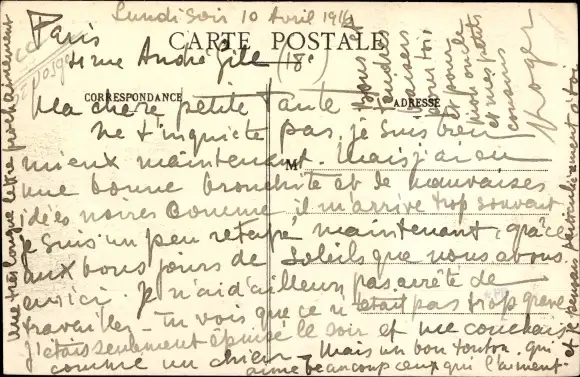 Lundi soir 10 Avril 191
Paris
CARTE POSTALE
4 rue André Gill (18e)
CORRESPONDANCE
ADRESSE
M
Ma chère petite Tante
Ne t'inquiète pas, je suis bien
mieux maintenant. Mais j'ai eu
une bonne bronchite et de mauvaises
idées noires comme il m'arrive trop souvent
je suis un peu retapé maintenant, grâce
aux bons jours de soleils que nous avons
eu ici. Je n'ai d'ailleurs pas arrêté de
travailler. Tu vois que ce n'était pas trop grave
j'étais seulement épuisé le soir et me couchais
comme un chien. Mais un bon tonton qui
aime beaucoup ceux qui l'aiment.
et je pensais particulièrement à toi
Une très longue lettre prochainement
tendres
baisers
pour toi
et pour le
mon oncle
et mes petits
cousins
Roger